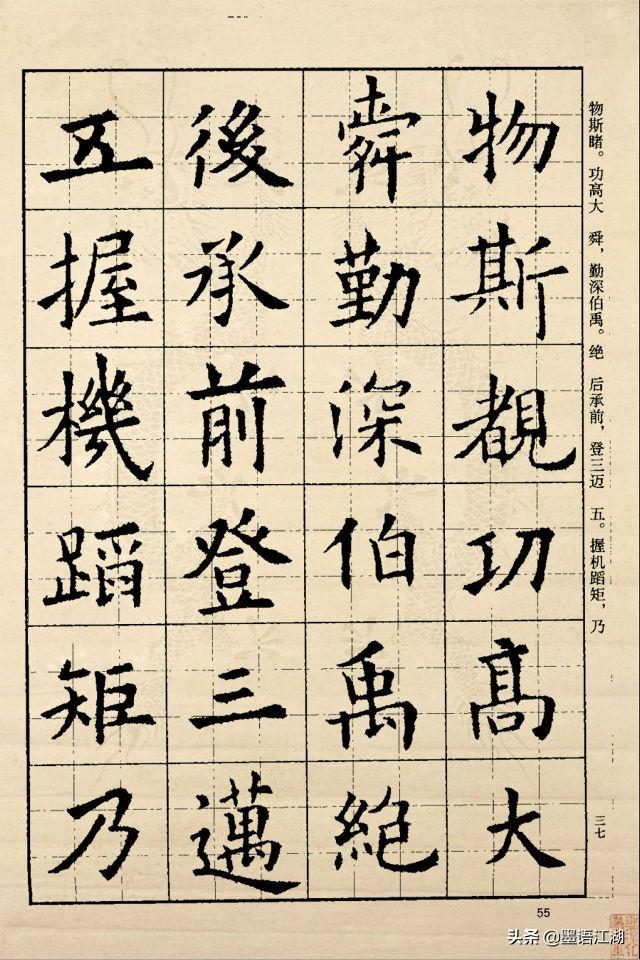 物斯覩功高大
舜勤深伯禹絕
後承前登三邁
五握機蹈矩乃
物斯睹。功高大 舜，勤深伯禹。绝 后承前，登三迈 五。握机蹈矩，乃
三七
55
头条 @墨语江湖